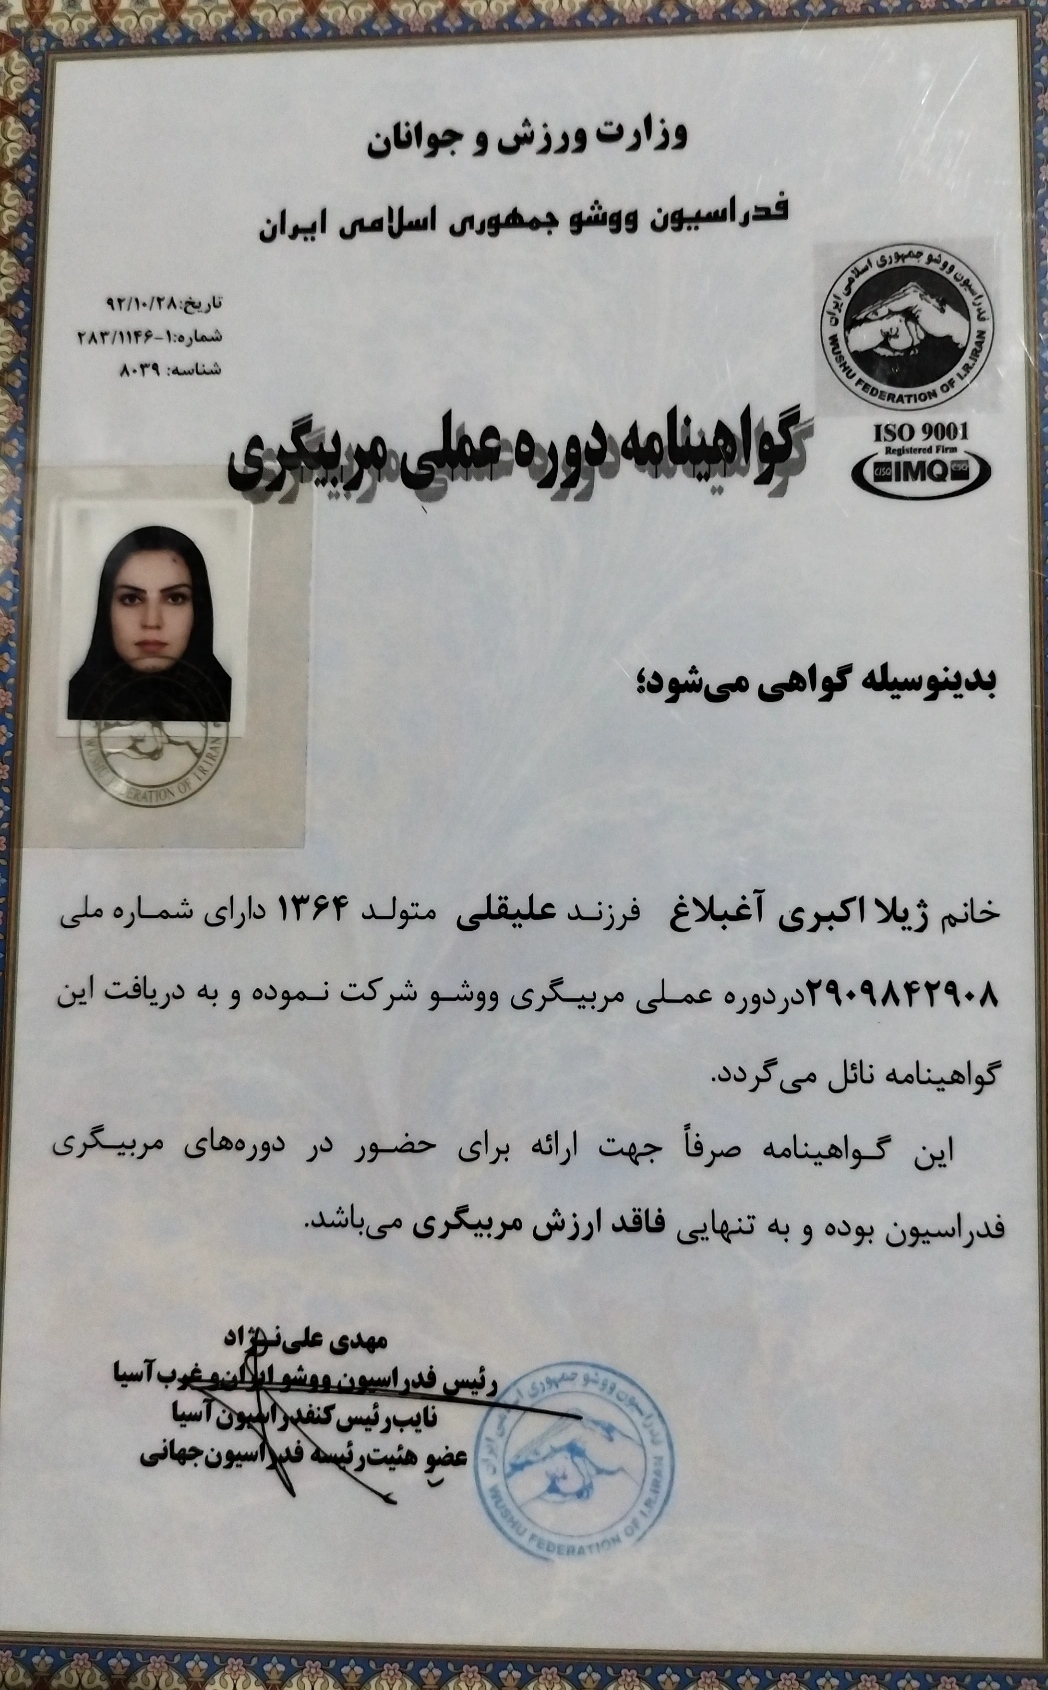 وزارت ورزش و جوانان
فدراسیون ووشو جمهوری اسلامی ایران
تاریخ:۹۲/۱۰/۲۸
شماره:۱-۲۸۳/۱۱۴۶
شناسه: ۸۰۳۹
فدراسیون ووشو جمهوری اسلامی ایران
WUSHU FEDERATION OF I.R.IRAN
ISO 9001
Registered Firm
CISQ IMQ CSQ
گواهینامه دوره عملی مربیگری
WUSHU FEDERATION OF I.R.IRAN
بدینوسیله گواهی می‌شود؛
خانم ژیلا اکبری آغبلاغ فرزند علیقلی متولد ۱۳۶۴ دارای شماره ملی
۲۹۰۹۸۴۲۹۰۸دردوره عملی مربیگری ووشو شرکت نموده و به دریافت این
گواهینامه نائل می‌گردد.
این گواهینامه صرفاً جهت ارائه برای حضور در دوره‌های مربیگری
فدراسیون بوده و به تنهایی فاقد ارزش مربیگری می‌باشد.
مهدی علی‌نژاد
رئیس فدراسیون ووشو ایران‌و غرب‌آسیا
نایب‌رئیس‌کنفدراسیون‌آسیا
عضو هئیت‌رئیسه فدراسیون‌جهانی
فدراسیون ووشو جمهوری اسلامی ایران
WUSHU FEDERATION OF I.R.IRAN